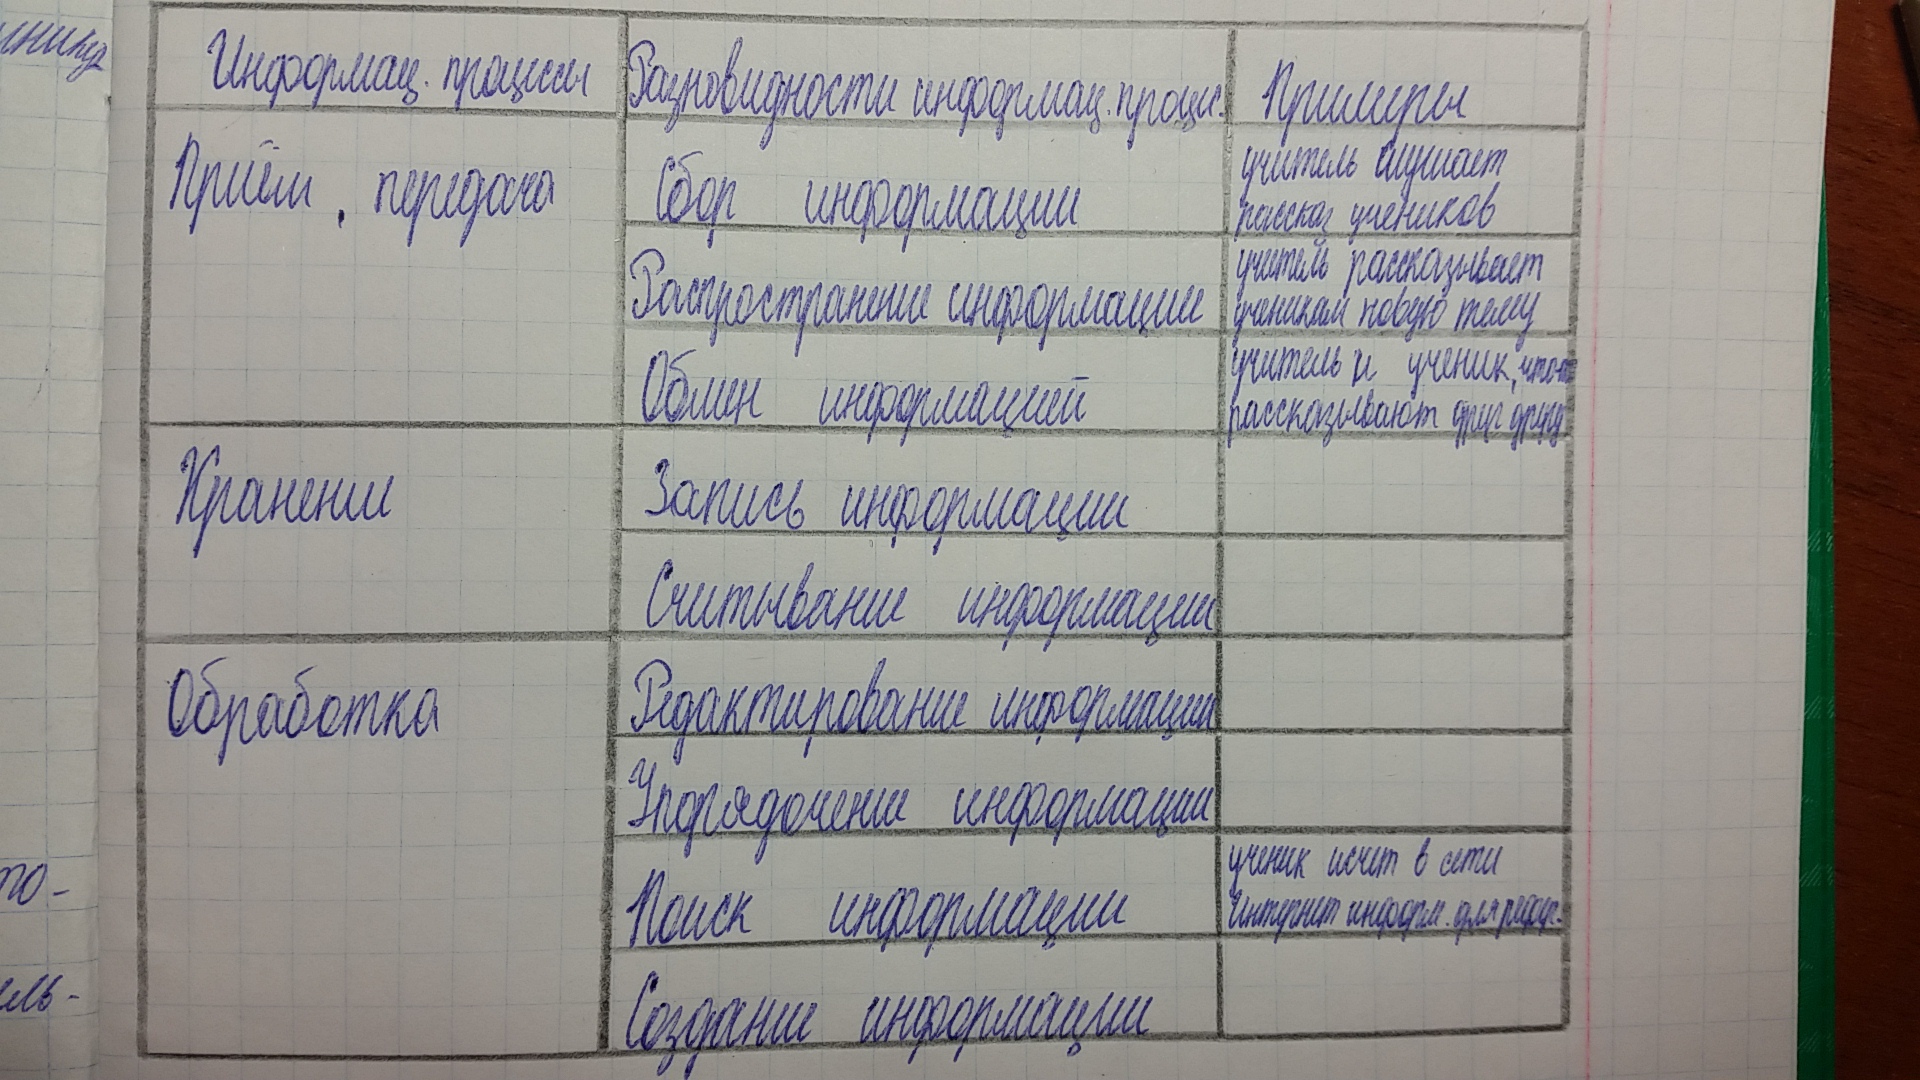 Информац. процессы
Разновидности информац. процес.
Примеры
Приём, передача
Сбор информации
учитель слушает
рассказ учеников
Распространение информации
учитель рассказывает
ученикам новую тему
Обмен информацией
учитель и ученик, что-то
рассказывают друг другу
Хранение
Запись информации
Считывание информации
Обработка
Редактирование информации
Упорядочение информации
Поиск информации
ученик исчет в сети
Интернет информ. для рефер.
Создание информации
то-
ель-